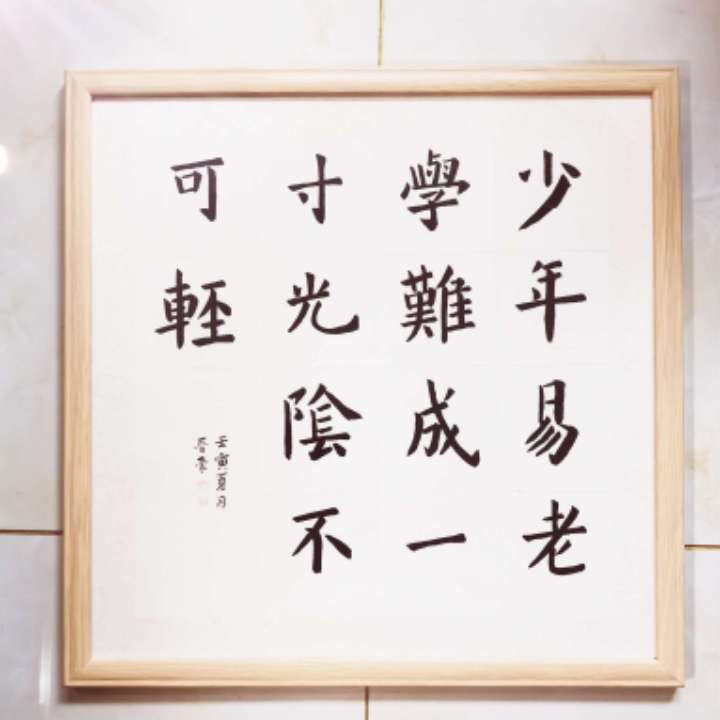 少年易老
學難成一
寸光陰不
可輕
壬寅夏月